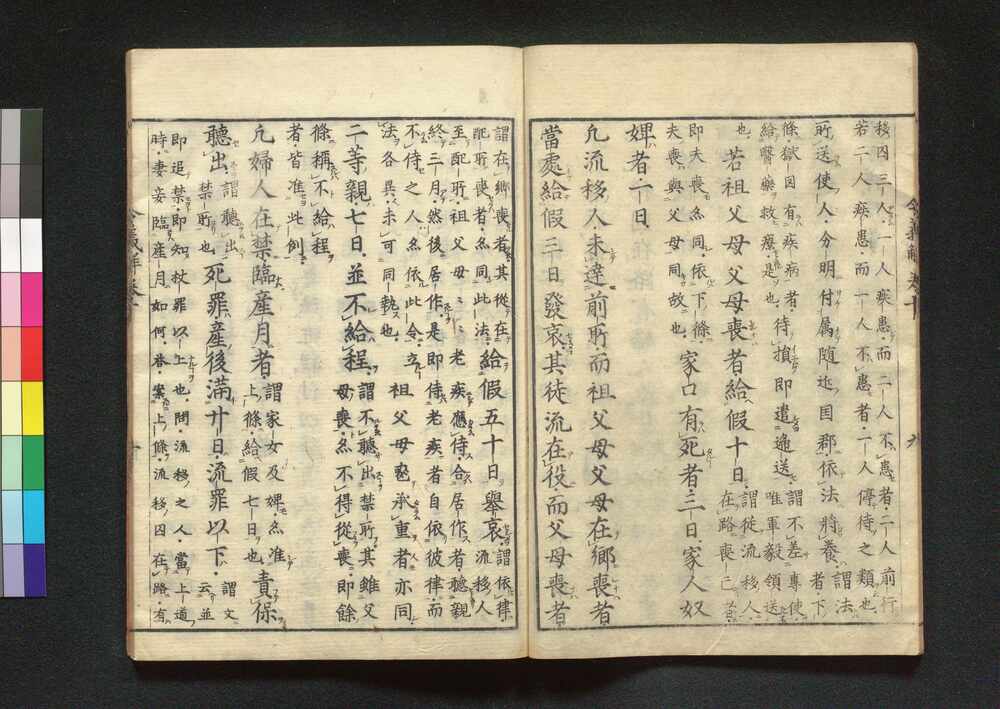 移囚三人・一人疾患・而二人不患者・二人前行
若二人疾患・而一人不患者・一人停待之類也
所送使人・分明付属随近国郡・依法將養 謂法者下
條獄囚有疾病者・
給醫藥救療是也・ 待損即遣逓送 謂不差專使
唯軍毅領送
也 若祖父母父母喪者・給假十日 謂從流移人
在路喪已者
即夫喪亦同・依下條・
夫喪與父母同故也 家口有死者三日・家人奴
婢者一日・
凡流移人未達前所・而祖父母父母在鄉喪者・
當處給假三日發哀・其徒流在役・而父母喪者
謂在鄉喪者・其從在
配所喪者・亦同此法・ 給假五十日・舉哀 謂依律
流移人
至配所・祖父母々々老疾應侍合居作者・聽親
終三月・然後居作・是即侍老疾者・自依彼律・而
不侍之人・亦依此令・立
法各異・未可同執也 祖父母承重者亦同
二等親七日・並不給程 謂不聽出禁所・其雖父
母喪・亦不得從喪・即餘
條稱不給程
者・皆准此例
凡婦人在禁・臨產月者・ 謂家女及婢・亦准
上條給假七日也 責保
聽出 謂聽出
禁所也 死罪產後滿廿日・流罪以下・ 謂文
云並
即追禁・即知杖罪以上也・問流移之人・當上道
時・妻妾臨產月・如何・答・案上條・流移囚在路・有